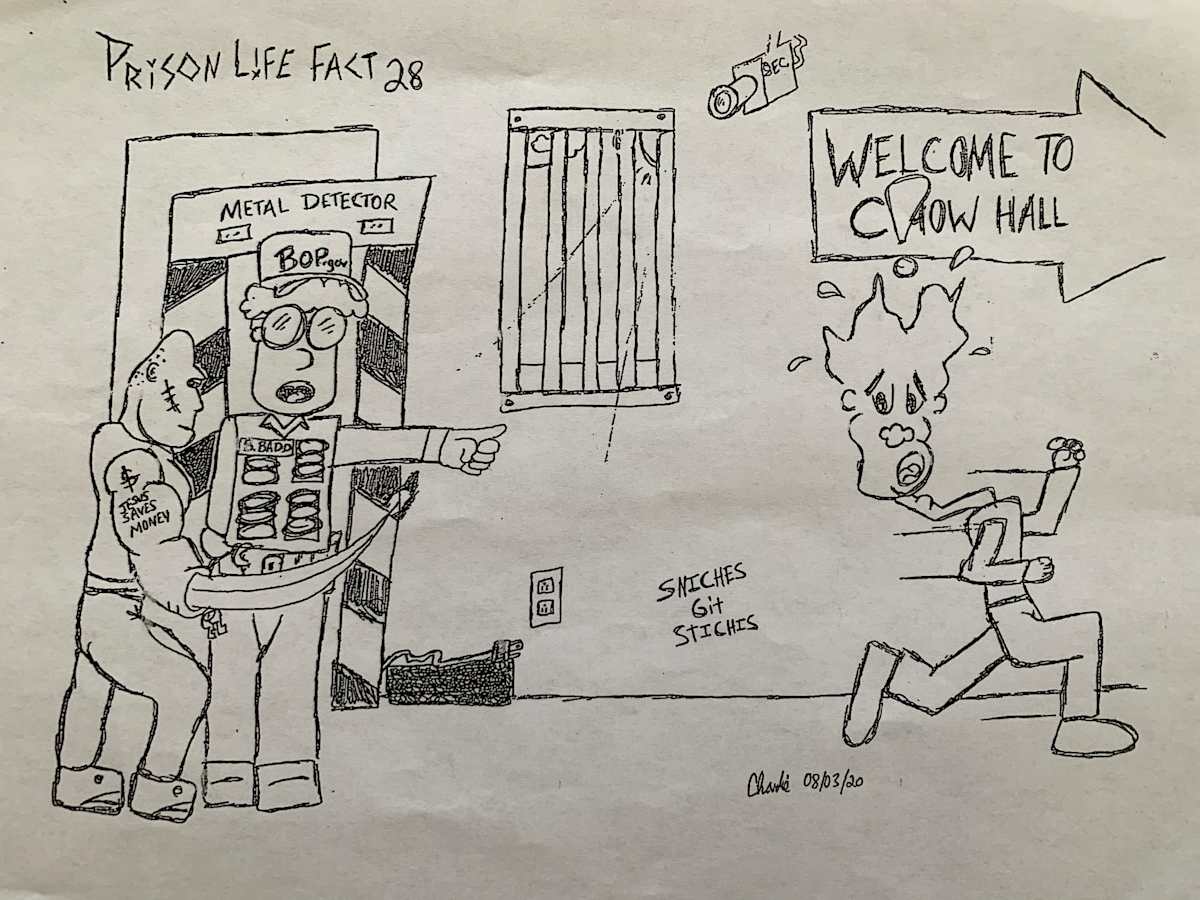 PRISON LIFE FACT 28
SEC
WELCOME TO
CHOW HALL
METAL DETECTOR
BOP.gov
BADD
$
JESUS
SAVES
MONEY
SNICHES
Git
STICHIS
Charlie 08/03/20